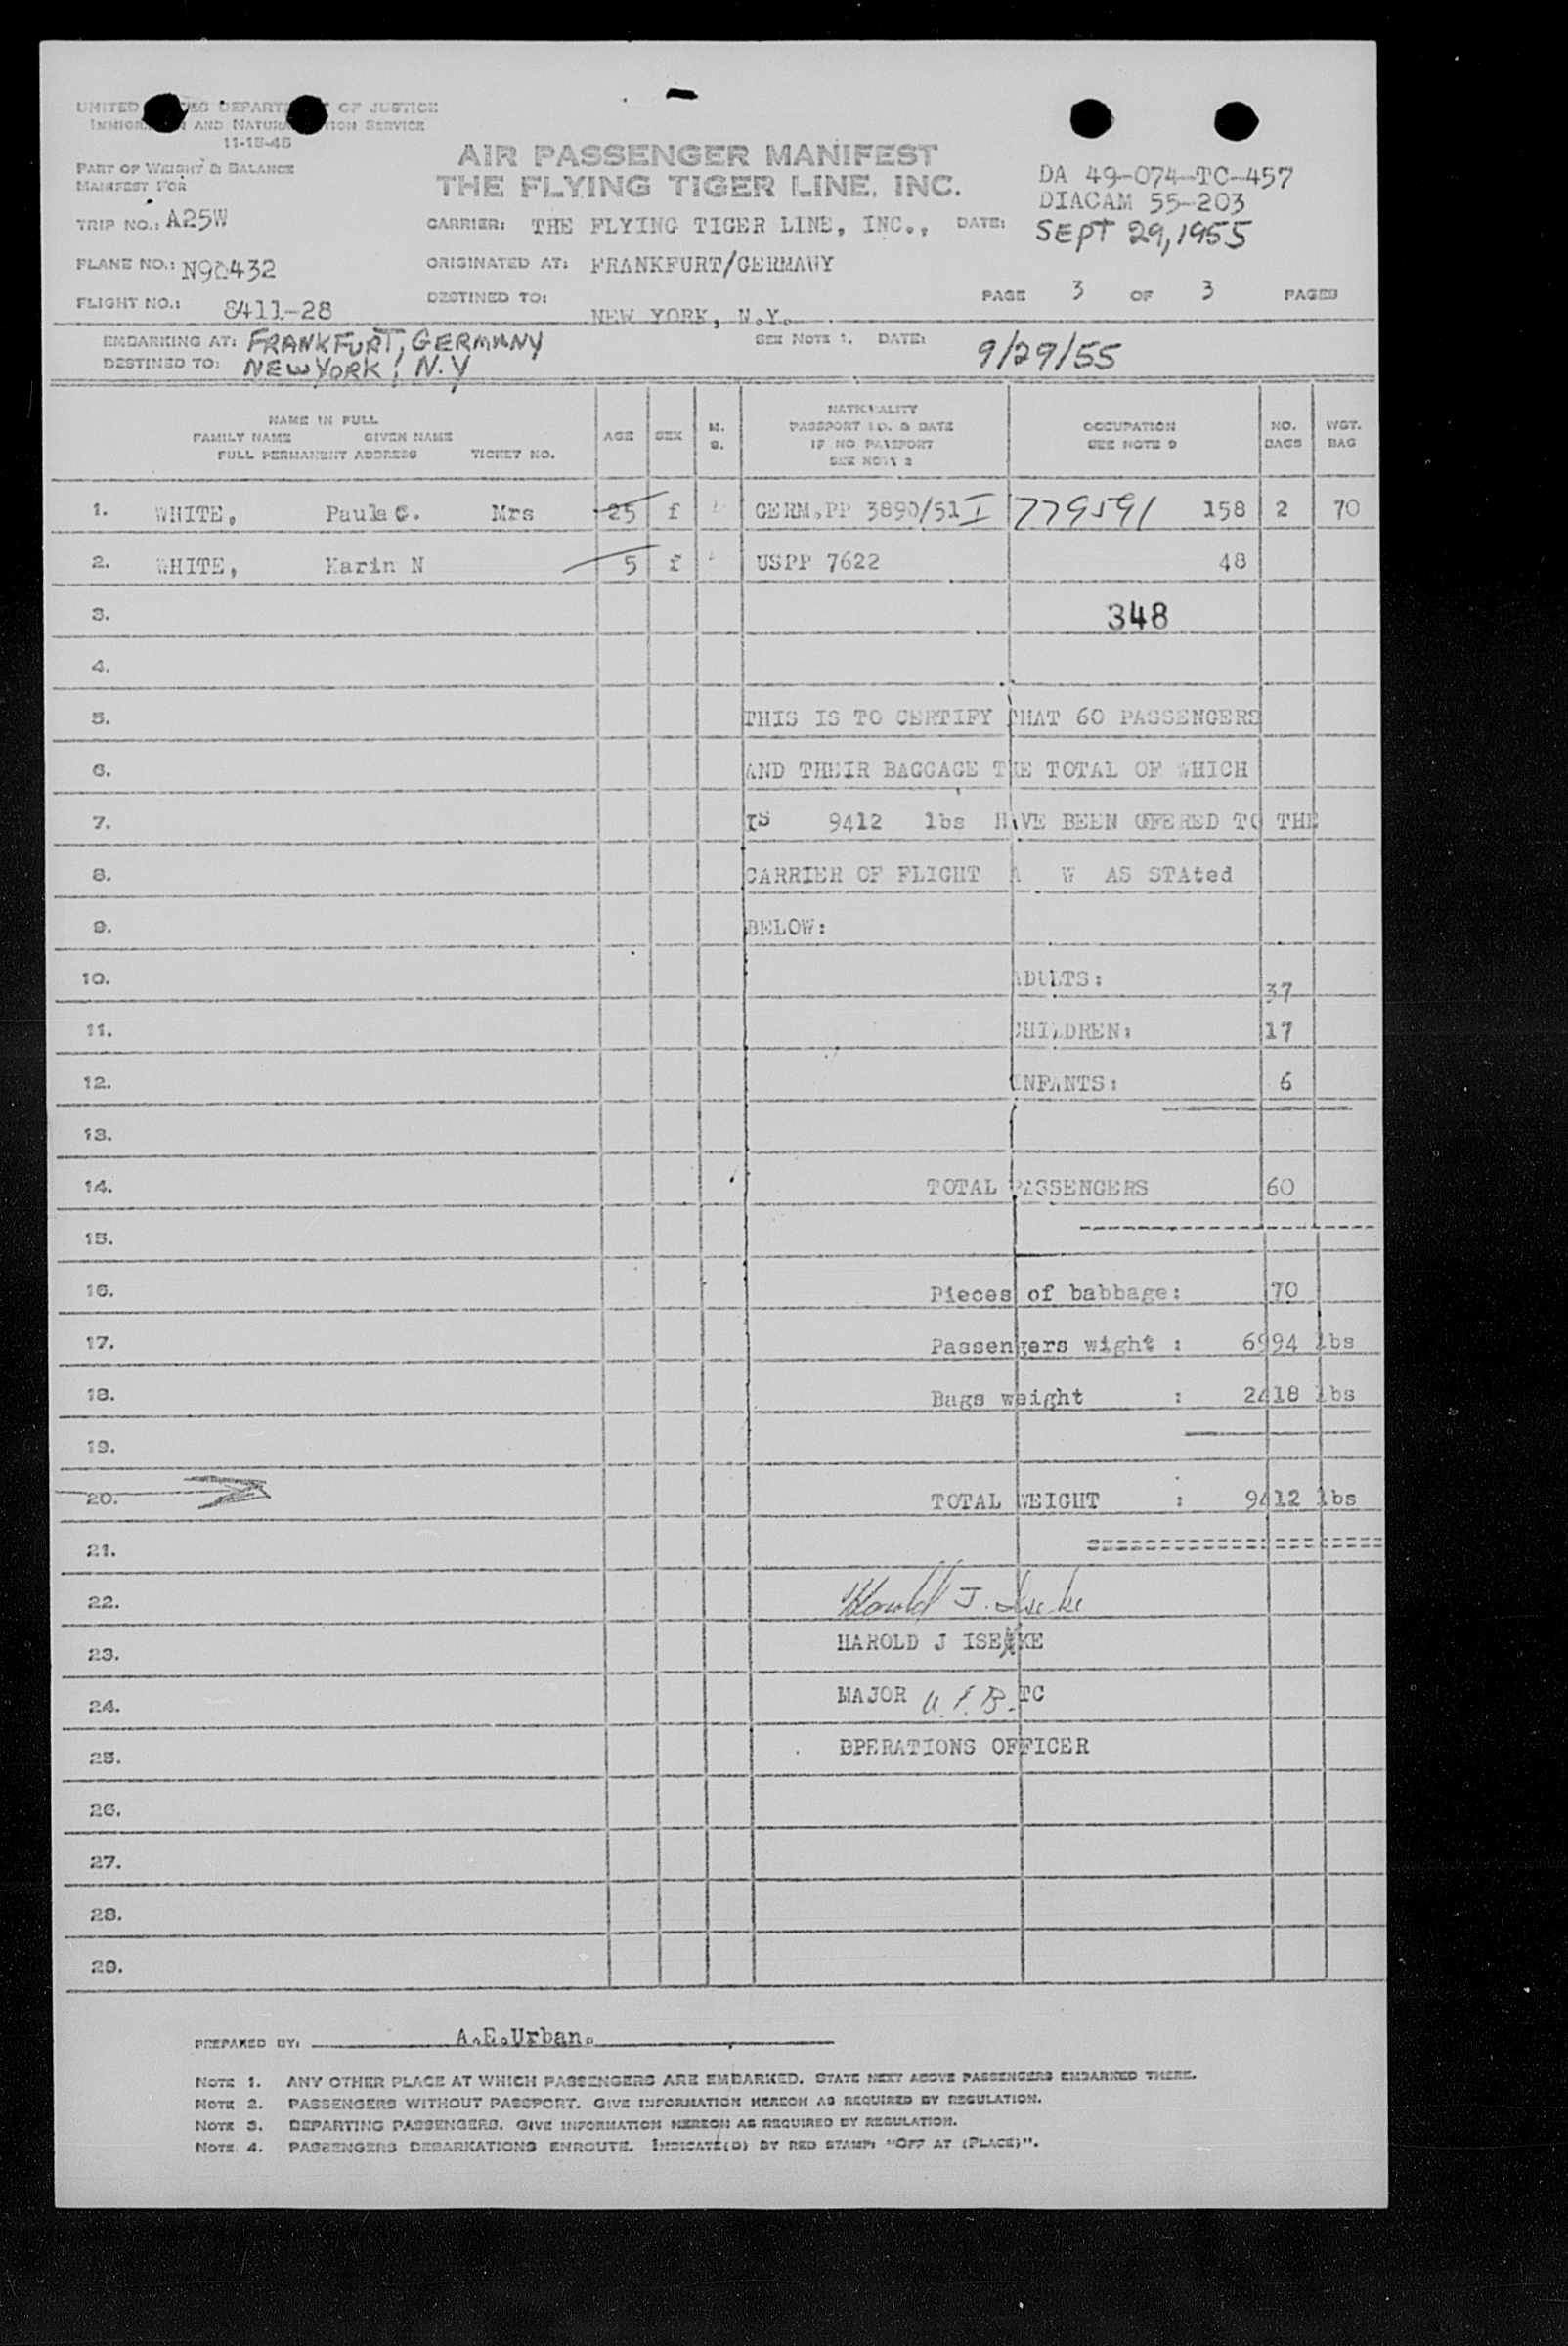 UNITED DEPART OF JUSTICE
IMMIGR AND NATURA TION SERVICE
11-18-48
PART OF WEIGHT & BALANCE
MANIFEST FOR
AIR PASSENGER MANIFEST
THE FLYING TIGER LINE, INC.
DA 49-074-TC-457
DIACAM 55-203
TRIP NO.: A25W
CARRIER: THE FLYING TIGER LINE, INC., DATE: SEPT 29, 1955
PLANE NO.:
ORIGINATED AT: FRANKFURT/GERMANY
FLIGHT NO.: 8411-28
DESTINED TO: NEW YORK, N.Y.
PAGE 3 OF 3 PAGES
EMBARKING AT: FRANKFURT, GERMANY
SEE NOTE 1. DATE: 9/29/55
DESTINED TO: NEW YORK, N.Y
NAME IN FULL
FAMILY NAME GIVEN NAME
FULL PERMANENT ADDRESS TICKET NO.
AGE
SEX
M.
S.
NATIONALITY
PASSPORT NO. & DATE
IF NO PASSPORT
SEE NOTE 2
OCCUPATION
SEE NOTE 3
NO.
BAGS
WGT.
BAG
1. WHITE, Paula G. Mrs 25 f GERM.PP 3890/51 I 779591 158 2 70
2. WHITE, Karin N 5 f USPP 7622 48
3. 348
4.
5. THIS IS TO CERTIFY THAT 60 PASSENGERS
6. AND THEIR BAGGAGE THE TOTAL OF WHICH
7. IS 9412 lbs HAVE BEEN OFFERED TO THE
8. CARRIER OF FLIGHT A W AS STAted
9. BELOW:
10. ADULTS: 37
11. CHILDREN: 17
12. INFANTS: 6
13.
14. TOTAL PASSENGERS 60
15.
16. Pieces of babbage: 70
17. Passengers wight : 6994 lbs
18. Bags weight : 2418 lbs
19.
20. TOTAL WEIGHT : 9412 lbs
21.
22. Harold J. Isecke
23. HAROLD J ISECKE
24. MAJOR TC
25. OPERATIONS OFFICER
26.
27.
28.
29.
PREPARED BY: A.E.Urban.
NOTE 1. ANY OTHER PLACE AT WHICH PASSENGERS ARE EMBARKED. STATE NEXT ABOVE PASSENGERS EMBARKED THERE.
NOTE 2. PASSENGERS WITHOUT PASSPORT. GIVE INFORMATION HEREON AS REQUIRED BY REGULATION.
NOTE 3. DEPARTING PASSENGERS. GIVE INFORMATION HEREON AS REQUIRED BY REGULATION.
NOTE 4. PASSENGERS DEBARKATIONS ENROUTE. INDICATE(D) BY RED STAMP: "OFF AT (PLACE)".